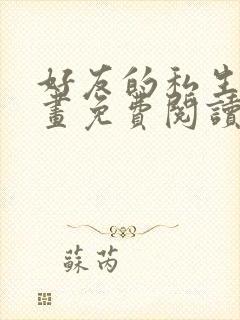 好友的私生
畫免費閱讀
蘇芮